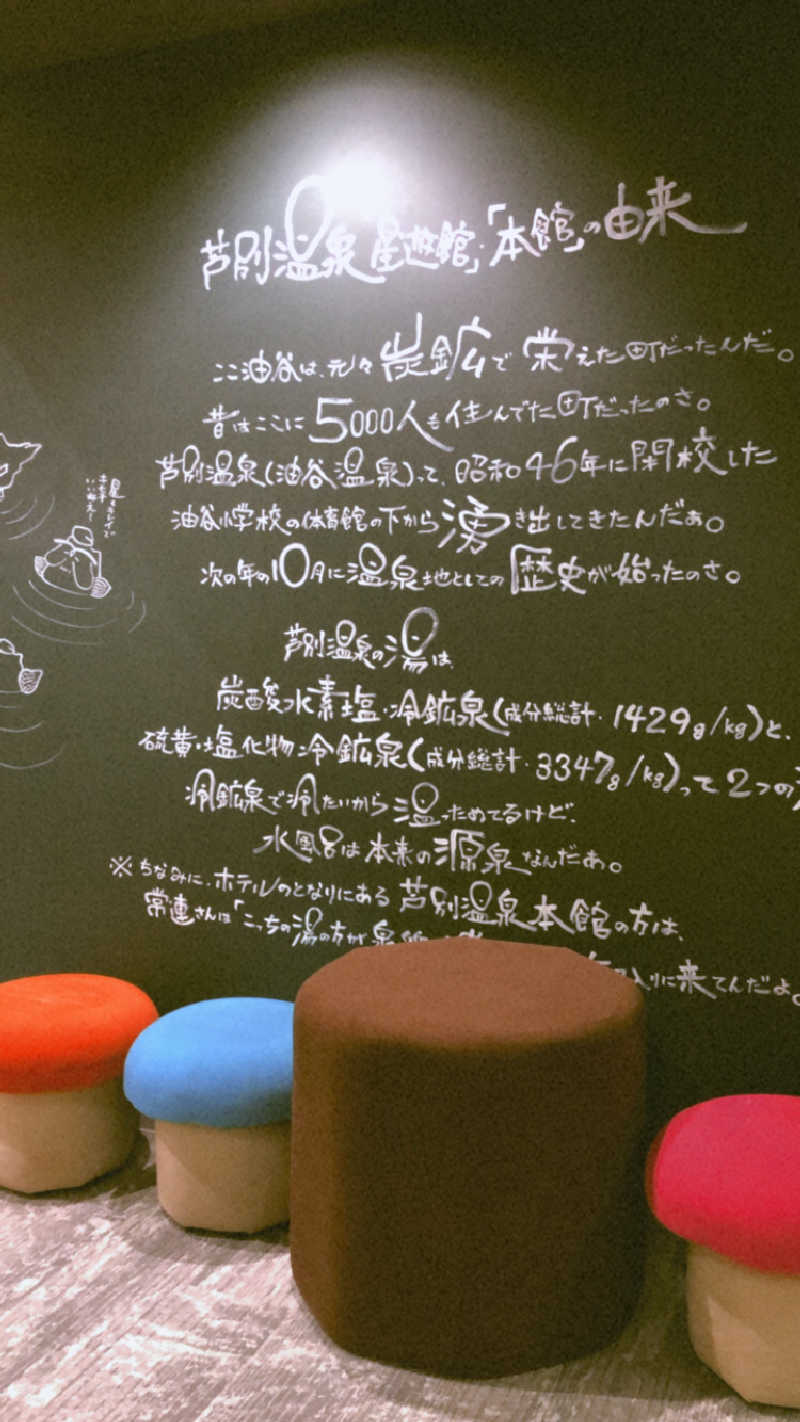 芦別温泉「星遊館」・「本館」の由来
ここ油谷は、元々炭鉱で栄えた町だったんだ。
昔はここに5000人も住んでた町だったのさ。
芦別温泉(油谷温泉)って、昭和46年に閉校した
油谷小学校の体育館の下から湧き出してきたんだぁ。
次の年の10月に温泉地としての歴史が始ったのさ。
芦別温泉の湯は、
炭酸水素塩・冷鉱泉(成分総計・1429g/kg)と、
硫黄・塩化物冷鉱泉(成分総計・3347g/kg)って2つの
冷鉱泉で冷たいから温っためてるけど、
水風呂は本来の源泉なんだぁ。
※ちなみに、ホテルのとなりにある芦別温泉本館の方は、
常連さんは「こっちの湯の方が泉質
入りに来てんだよ。